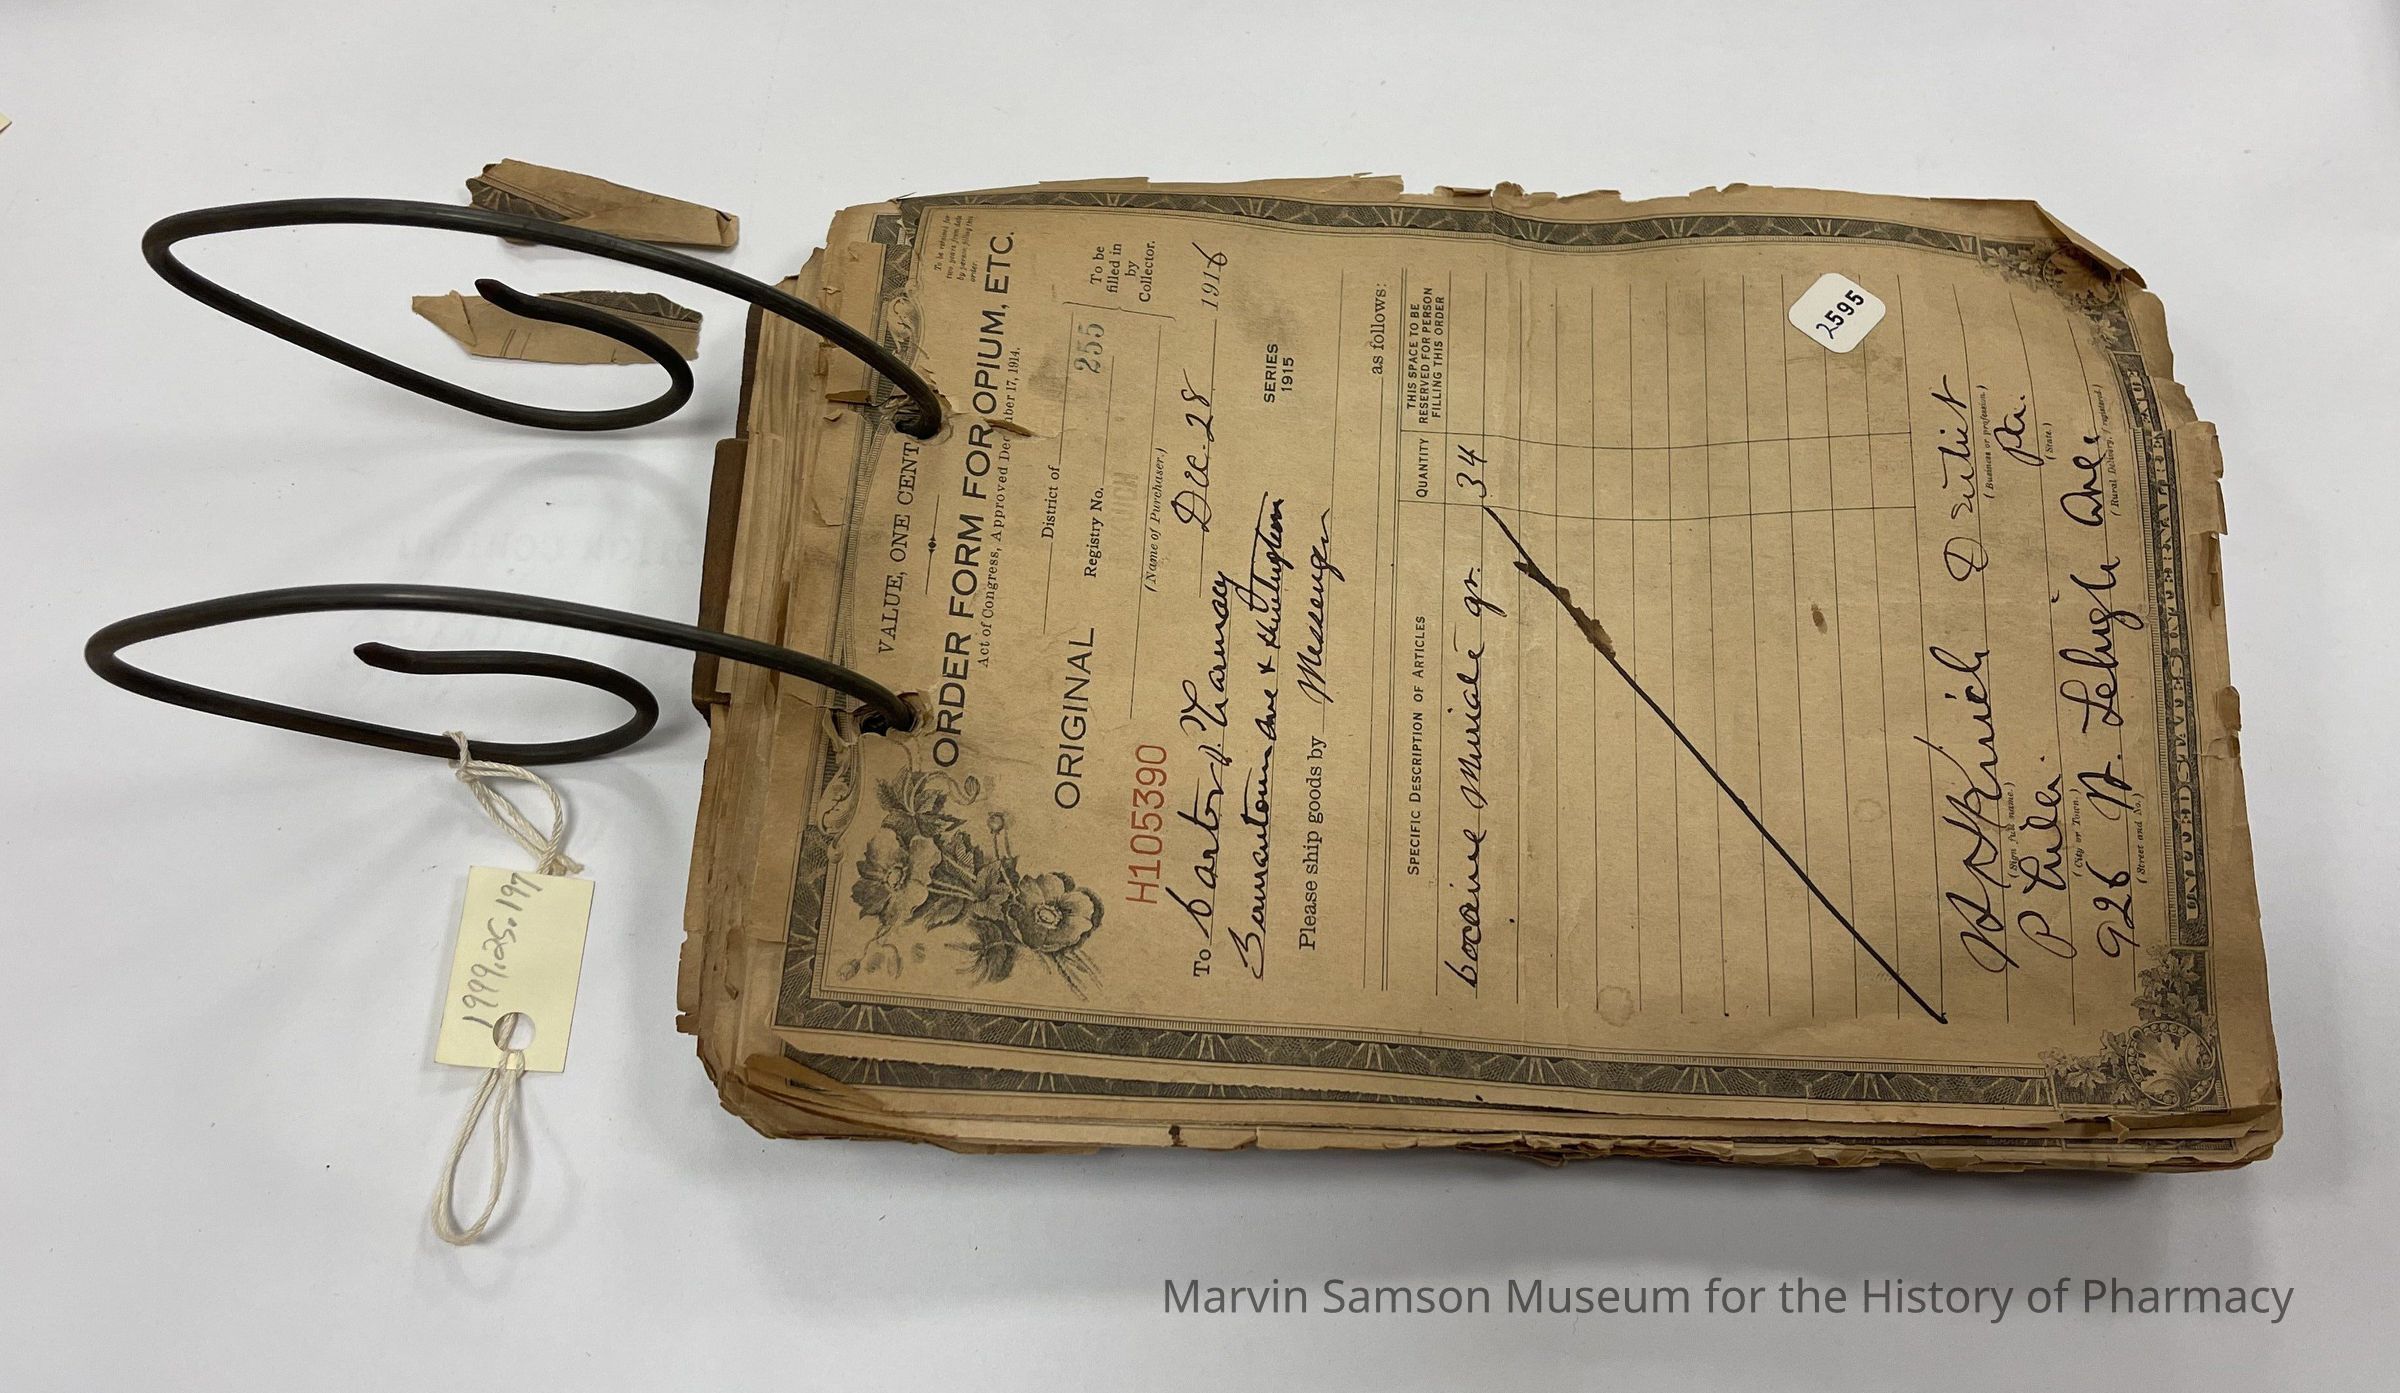 VALUE, ONE CENT
To be retained for
two years from date
by person filling this
order.
ORDER FORM FOR OPIUM, ETC.
Act of Congress, Approved December 17, 1914.
ORIGINAL
District of
Registry No. 255
To be
filled in
by
Collector.
(Name of Purchaser.)
H1053390
Dec. 28 1916
To Barton Pharmacy
Germantown Ave &
SERIES
1915
Please ship goods by Messenger
as follows:
SPECIFIC DESCRIPTION OF ARTICLES
QUANTITY
THIS SPACE TO BE
RESERVED FOR PERSON
FILLING THIS ORDER
Cocaine Muriate gr. 34
2595
Kirich Dentist
(Sign full name.) (Business or profession.)
Phila. Pa.
(City or Town.) (State.)
926 W. Lehigh Ave.
(Street and No.) (Rural Delivery, if registered.)
UNITED STATES INTERNAL REVENUE
1999.25.197
Marvin Samson Museum for the History of Pharmacy